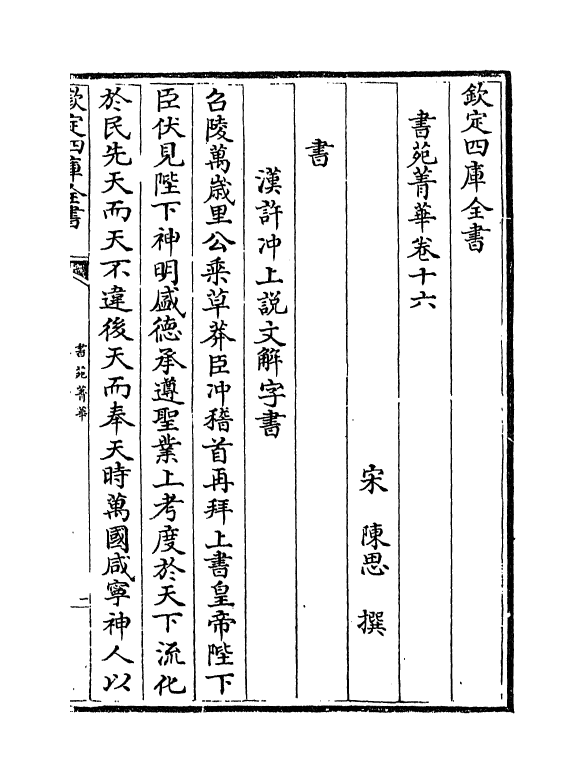 欽定四庫全書
書苑菁華卷十六
宋　陳思　撰
書
漢許冲上説文解字書
召陵萬歲里公乘草莽臣冲稽首再拜上書皇帝陛下
臣伏見陛下神明盛德承遵聖業上考度於天下流化
於民先天而天不違後天而奉天時萬國咸寧神人以
欽定四庫全書
書苑菁華